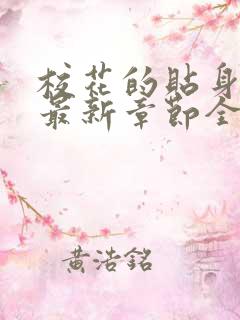 校花的貼身
最新章節全
黃浩銘